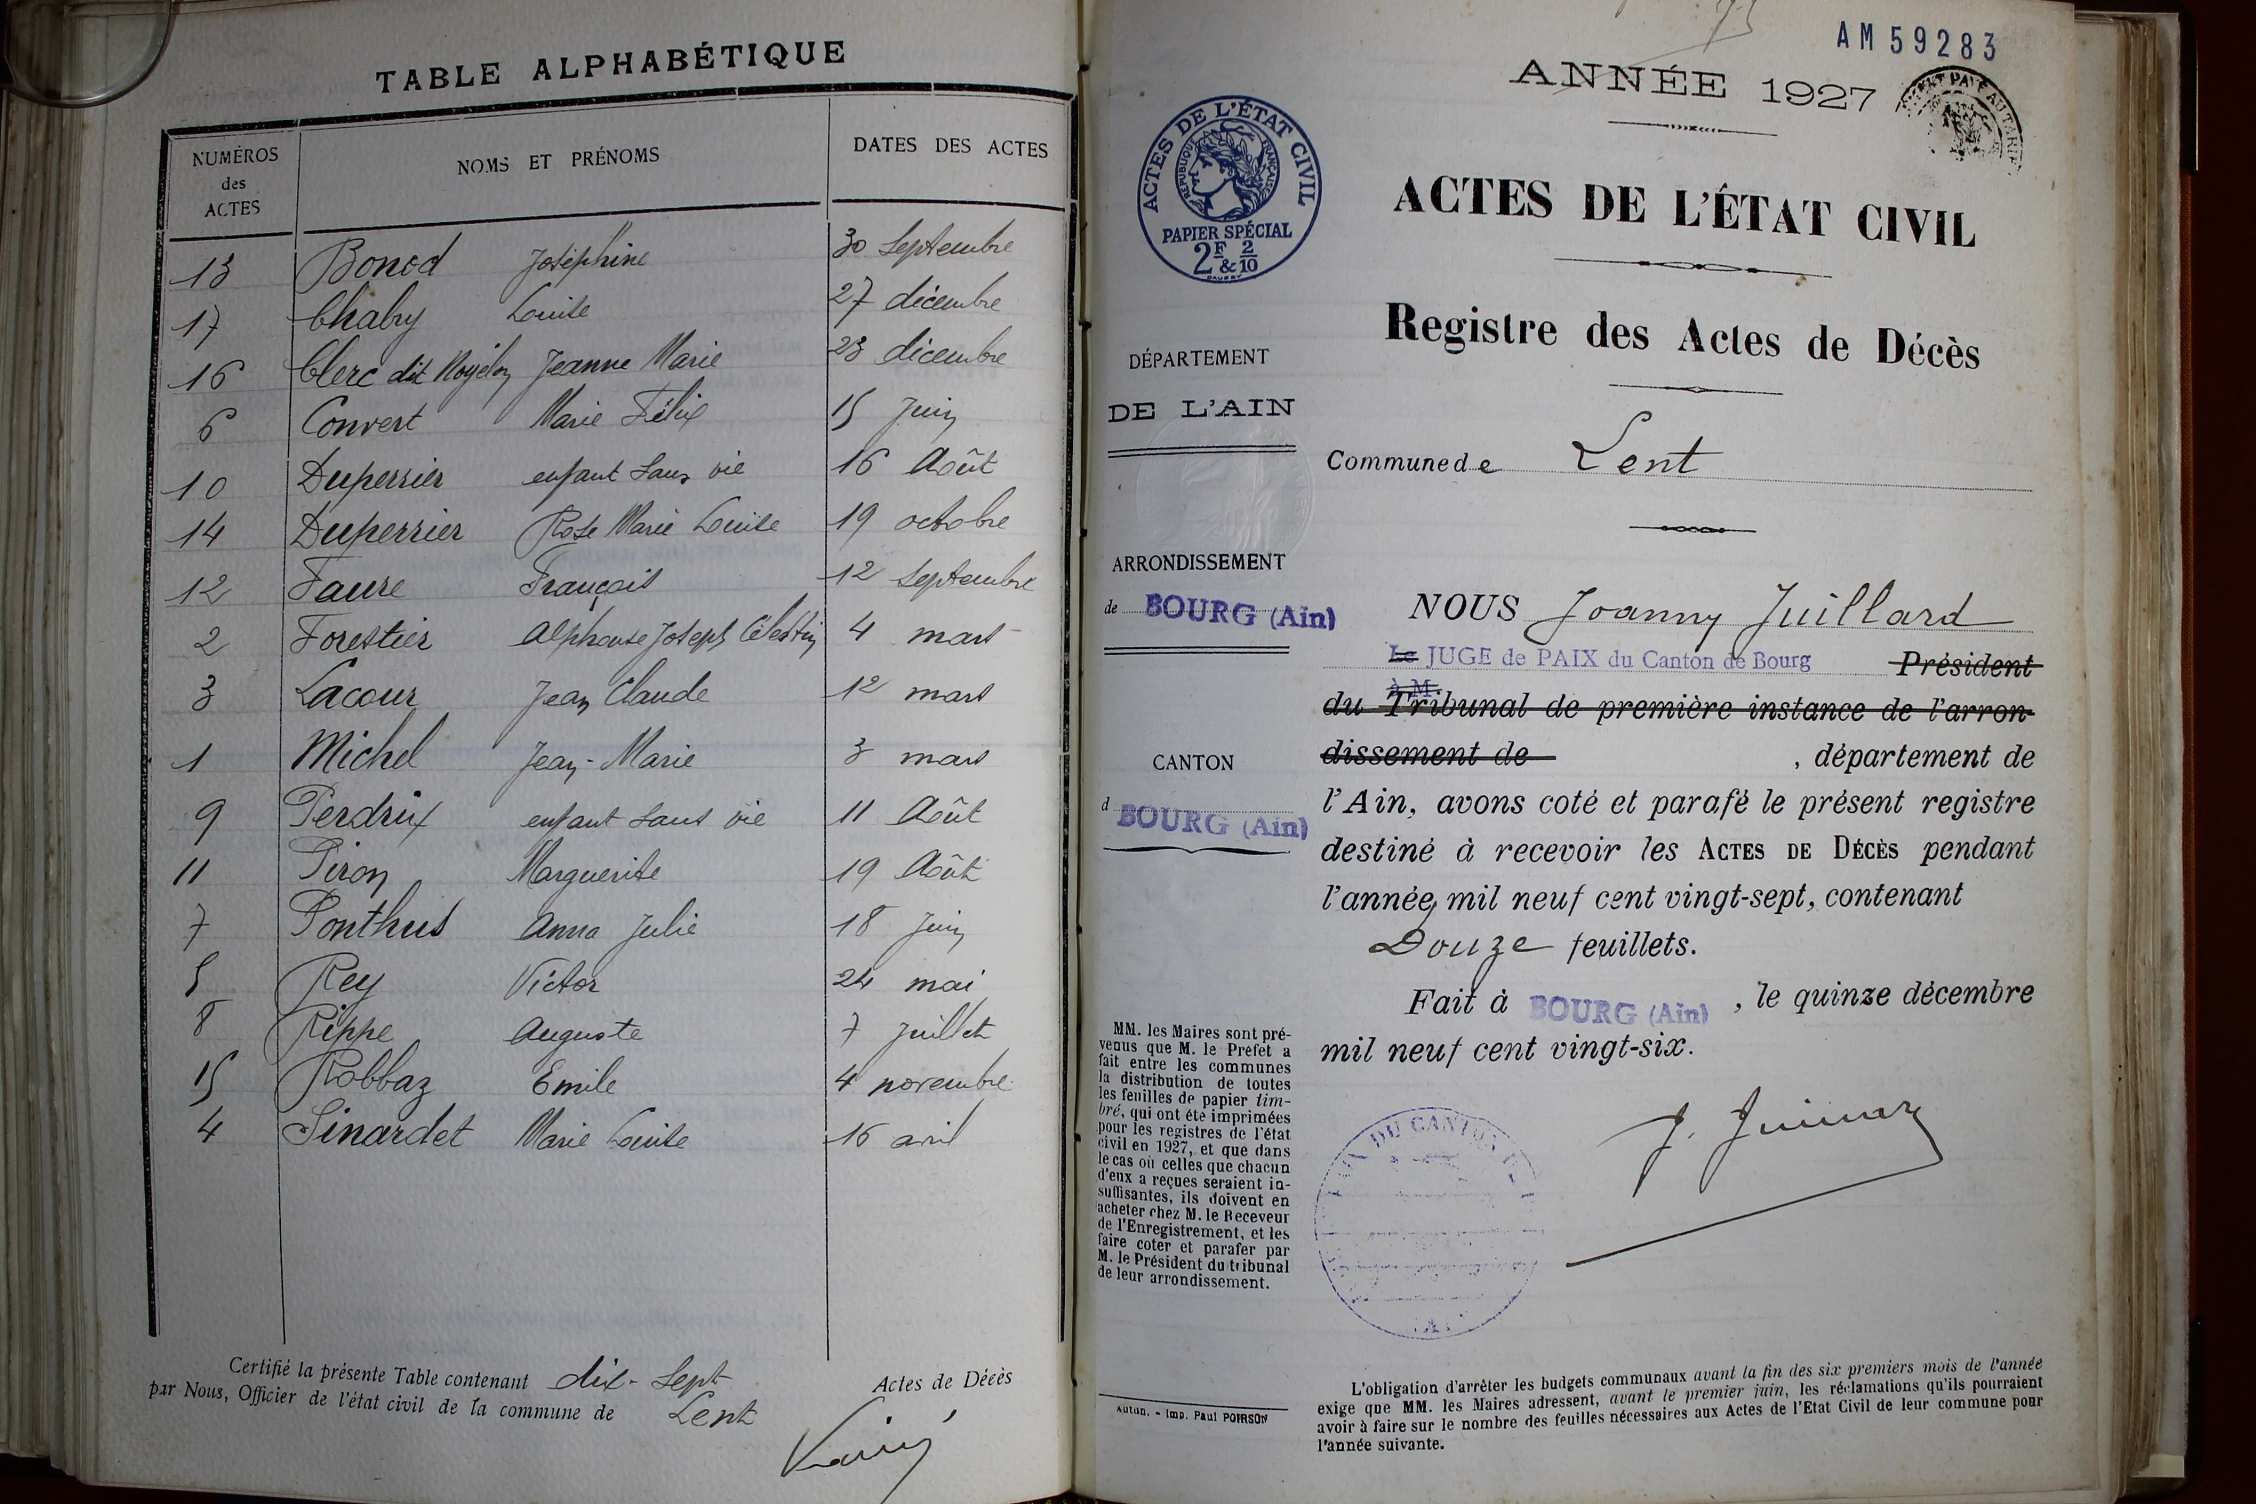 TABLE ALPHABÉTIQUE
NUMÉROS des ACTES
NOMS ET PRÉNOMS
DATES DES ACTES
13 Bonod Joséphine 30 Septembre
17 Chabry Louise 27 décembre
16 Clerc dit Jeanne Marie 23 décembre
6 Convert Marie Félix 15 Juin
10 Duperrier enfant sans vie 16 Août
14 Duperrier Rose Marie Louise 19 octobre
12 Faure François 12 Septembre
2 Forestier Alphonse Joseph Célestin 4 mars
3 Lacour Jean Claude 12 mars
1 Michel Jean-Marie 3 mars
9 Perdrix enfant sans vie 11 Août
11 Piron Marguerite 19 Août
7 Ponthus Anna Julie 18 Juin
5 Rey Victor 24 mai
8 Rippe Auguste 7 Juillet
15 Robbaz Emile 4 novembre
4 Sinardet Marie Louise 16 avril
Certifié la présente Table contenant dix-sept Actes de Décès
par Nous, Officier de l'état civil de la commune de Lent
AM59283
ANNÉE 1927
ACTES DE L'ÉTAT CIVIL
RÉPUBLIQUE FRANÇAISE
PAPIER SPÉCIAL
2F & 2/10
ACTES DE L'ÉTAT CIVIL
Registre des Actes de Décès
DÉPARTEMENT
DE L'AIN
Commune de Lent
ARRONDISSEMENT
de BOURG (Ain)
CANTON
d BOURG (Ain)
NOUS Joanny Juillard
Le JUGE de PAIX du Canton de Bourg Président
à M.
du Tribunal de première instance de l'arron-
dissement de , département de
l'Ain, avons coté et parafé le présent registre
destiné à recevoir les ACTES DE DÉCÈS pendant
l'année mil neuf cent vingt-sept, contenant
Douze feuillets.
Fait à BOURG (Ain) , le quinze décembre
mil neuf cent vingt-six.
MM. les Maires sont pré-
venus que M. le Préfet a
fait entre les communes
la distribution de toutes
les feuilles de papier tim-
bré, qui ont été imprimées
pour les registres de l'état
civil en 1927, et que dans
le cas où celles que chacun
d'eux a reçues seraient in-
suffisantes, ils doivent en
acheter chez M. le Receveur
de l'Enregistrement, et les
faire coter et parafer par
M. le Président du tribunal
de leur arrondissement.
DU CANTON
Autun. - Imp. Paul POIRSON
L'obligation d'arrêter les budgets communaux avant la fin des six premiers mois de l'année
exige que MM. les Maires adressent, avant le premier juin, les réclamations qu'ils pourraient
avoir à faire sur le nombre des feuilles nécessaires aux Actes de l'Etat Civil de leur commune pour
l'année suivante.